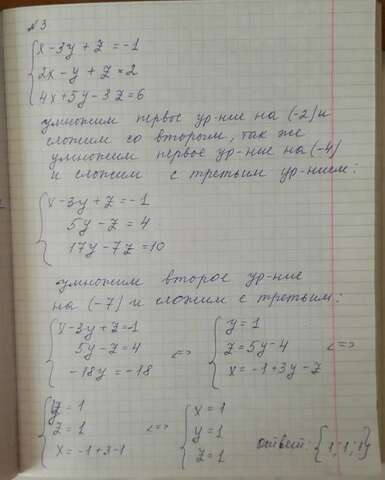 №3
x - 3y + z = -1
2x - y + z = 2
4x + 5y - 3z = 6
умножим первое ур-ние на (-2) и
сложим со вторым, так же
умножим первое ур-ние на (-4)
и сложим с третьим ур-нием:
x - 3y + z = -1
5y - z = 4
17y - 7z = 10
умножим второе ур-ние
на (-7) и сложим с третьим:
x - 3y + z = -1
5y - z = 4
-18y = -18
<=>
y = 1
z = 5y - 4
x = -1 + 3y - z
<=>
y = 1
z = 1
x = -1 + 3 - 1
<=>
x = 1
y = 1
z = 1
ответ: {1; 1; 1}